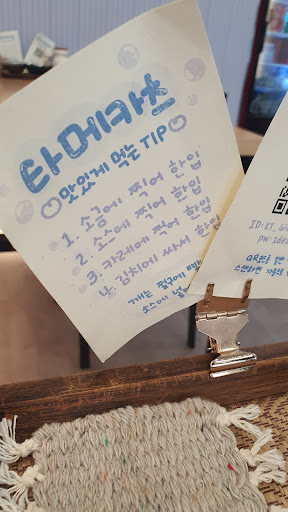 타메카츠
맛있게 먹는 TIP
1. 소금에 찍어 한입
2. 소스에 찍어 한입
3. 카레에 찍어 한입
4. 김치에 싸서 한입
소스에
ID: KT_Gi
PW:
QR코드를